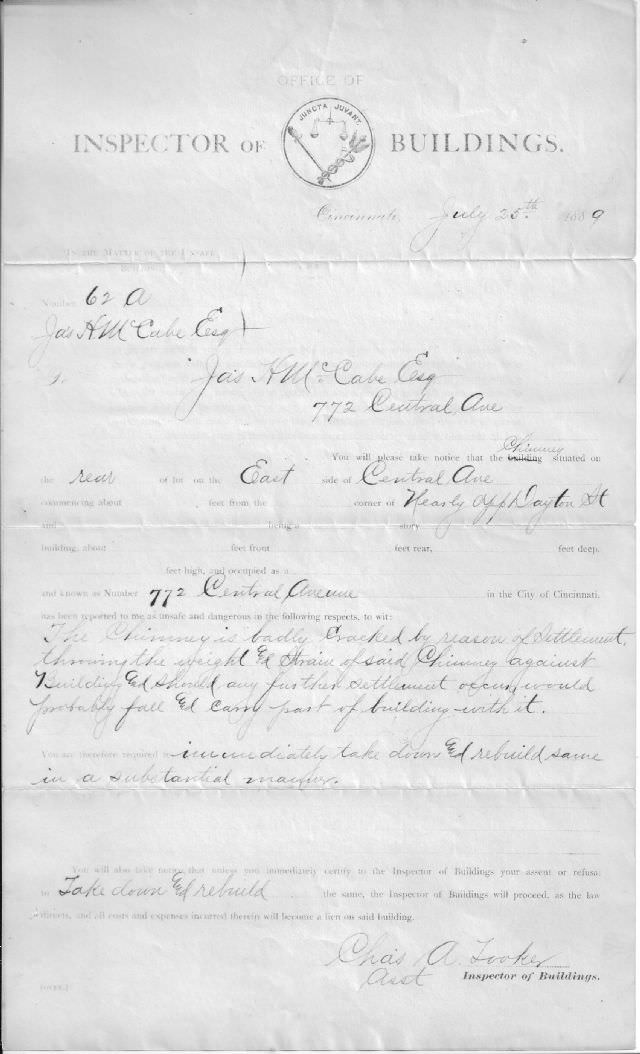 OFFICE OF
JUNCTA JUVANT.
INSPECTOR OF BUILDINGS.
Cincinnati, July 25th 1889
IN THE MATTER OF THE UNSAFE
BUILDING
Number 62 A
Jas H McCabe Esq
Jas H McCabe Esq
772 Central Ave
You will please take notice that the building Chimney situated on
the rear of lot on the East side of Central Ave
commencing about feet from the corner of Nearly opp Dayton St
and being a story
building, about feet front feet rear, feet deep,
feet high, and occupied as a
and known as Number 772 Central Avenue in the City of Cincinnati.
has been reported to me as unsafe and dangerous in the following respects, to wit:
The Chimney is badly Cracked by reason of Settlement,
throwing the weight & Strain of said Chimney against
Building & should any further settlement occur, would
probably fall & carry part of building with it.
You are therefore required to immediately take down & rebuild same
in a substantial manner.
You will also take notice that unless you immediately certify to the Inspector of Buildings your assent or refusal
to Take down & rebuild the same, the Inspector of Buildings will proceed, as the law
directs, and all costs and expenses incurred therein will become a lien on said building.
Chas A. Tooker
Asst Inspector of Buildings.